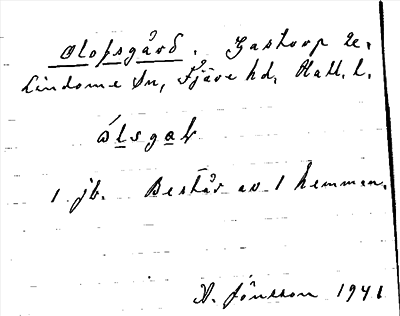 Olofsgård. Gastorp 2e.
Lindome Sn, Fjäre hd. Hall. l.
ólsgaḷ
1 jb. Består av 1 hemman.
A. Jönsson 1941